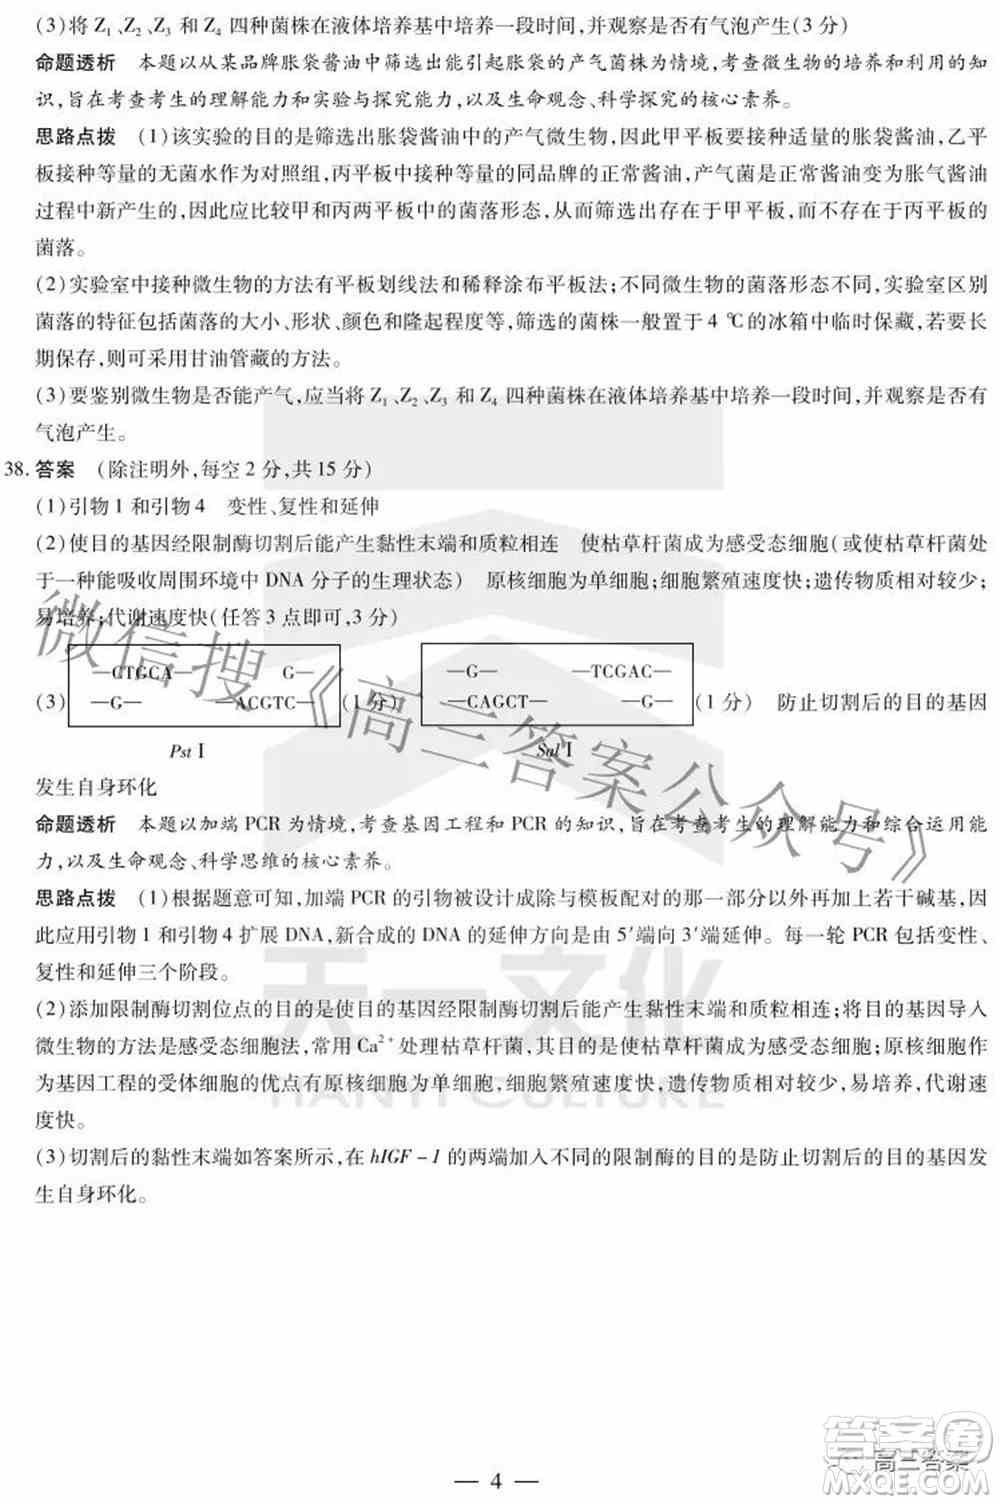 (3)将 Z₁、Z₂、Z₃ 和 Z₄ 四种菌株在液体培养基中培养一段时间,并观察是否有气泡产生(3 分)
命题透析 本题以从某品牌胀袋酱油中筛选出能引起胀袋的产气菌株为情境,考查微生物的培养和利用的知
识,旨在考查考生的理解能力和实验与探究能力,以及生命观念、科学探究的核心素养。
思路点拨 (1)该实验的目的是筛选出胀袋酱油中的产气微生物,因此甲平板要接种适量的胀袋酱油,乙平
板接种等量的无菌水作为对照组,丙平板接种等量的同品牌的正常酱油,产气菌是正常酱油变为胀气酱油
过程中新产生的,因此应比较甲和丙两平板中的菌落形态,从而筛选出存在于甲平板,而不存在于丙平板的
菌落。
(2)实验室中接种微生物的方法有平板划线法和稀释涂布平板法;不同微生物的菌落形态不同,实验室区别
菌落的特征包括菌落的大小、形状、颜色和隆起程度等,筛选的菌株一般置于 4 ℃的冰箱中临时保藏,若要长
期保存,则可采用甘油管藏的方法。
(3)要鉴别微生物是否能产气,应当将 Z₁、Z₂、Z₃ 和 Z₄ 四种菌株在液体培养基中培养一段时间,并观察是否有
气泡产生。
38. 答案 (除注明外,每空 2 分,共 15 分)
(1)引物 1 和引物 4 变性、复性和延伸
(2)使目的基因经限制酶切割后能产生黏性末端和质粒相连 使枯草杆菌成为感受态细胞(或使枯草杆菌处
于一种能吸收周围环境中 DNA 分子的生理状态) 原核细胞为单细胞;细胞繁殖速度快;遗传物质相对较少;
易培养;代谢速度快(任答 3 点即可,3 分)
—CTGCA— G— —G— —TCGAC—
(3) (1 分) (1 分) 防止切割后的目的基因
—G— —ACGTC— —CAGCT— —G—
Pst Ⅰ Sal Ⅰ
发生自身环化
命题透析 本题以加端 PCR 为情境,考查基因工程和 PCR 的知识,旨在考查考生的理解能力和综合运用能
力,以及生命观念、科学思维的核心素养。
思路点拨 (1)根据题意可知,加端 PCR 的引物被设计成除与模板配对的那一部分以外再加上若干碱基,因
此应用引物 1 和引物 4 扩展 DNA,新合成的 DNA 的延伸方向是由 5′端向 3′端延伸。每一轮 PCR 包括变性、
复性和延伸三个阶段。
(2)添加限制酶切割位点的目的是使目的基因经限制酶切割后能产生黏性末端和质粒相连;将目的基因导入
微生物的方法是感受态细胞法,常用 Ca²⁺处理枯草杆菌,目的是使枯草杆菌成为感受态细胞;原核细胞作
为基因工程的受体细胞的优点有原核细胞为单细胞,细胞繁殖速度快,遗传物质相对较少,易培养,代谢速
度快。
(3)切割后的黏性末端如答案所示,在 hIGF-1 的两端加入不同的限制酶的目的是防止切割后的目的基因发
生自身环化。
微信搜《高三答案公众号》
天一文化
TIANYI CULTURE
— 4 —
高三答案
答案圈
MXQE.COM